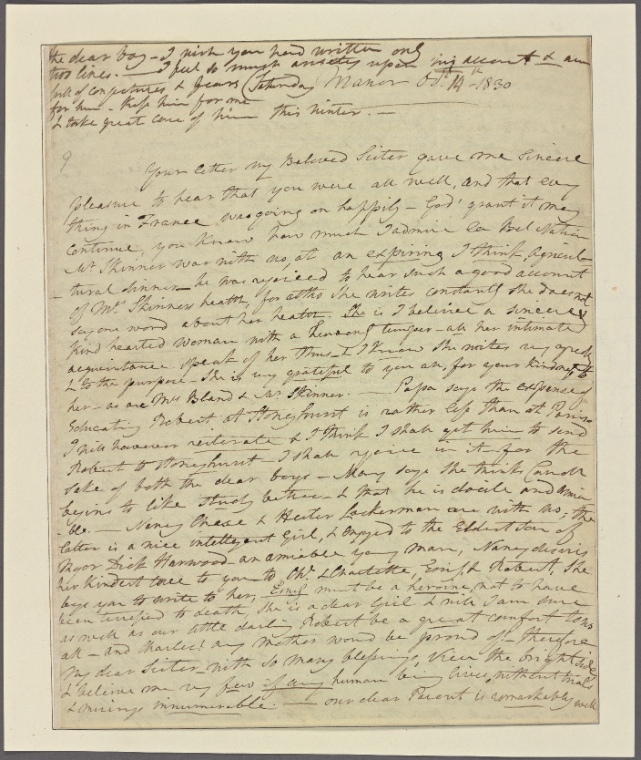 the dear boy - I wish you had written only
two lines. — I feel so much anxiety upon his account & am
full of conjectures & fears
for him - Kiss him for me
& take great care of him this winter. —
(Saturday Manor Octr 14th - 1830
9
Your letter my Beloved Sister gave me sincere
pleasure to hear that you were all well, and that every
thing in France was going on happily - God grant it may
continue, you know how much I admire La Bel Nation
Mr Skinner was with us, at an expiring I think, Agricul-
-tural dinner - he was rejoiced to hear such a good account
of Mrs Skinners health, for altho She writes constantly she does not
say one word about her health. She is I believe a sincere
kind hearted woman with a temper - all her intimate
acquaintance speak of her thus - & I know She writes very
& to the purpose - She is very grateful to you all, for your kindness to
her - as are Mrs Bland & Mr Skinner. — Papa says the expence of
Educating Robert at Stonyhurst is rather less than at
I will however reiterate & I think I shall get him to send
Robert to Stonyhurst - I shall rejoice in it - for the
sake of both the dear boys - Mary says she thinks Carroll
begins to like study better - & that he is docile and amia-
-ble — Nancy Chase & Hester Lockerman are with us; the
latter is a nice intelligent Girl, & engaged to the Eldest Son of
Major Dick Harwood an amiable young man, Nancy desires
her kindest love to you to Chs. & Charlotte, & Robert. She
begs you to write to her, - must be a heroine, not to have
been terrified to death, She is a dear Girl & will I am sure
as well as our little darling Robert be a great comfort to us
all - and Charles! any mother would be proud of - therefore
my dear Sister, with so many blessings, View the bright side
& believe me very few if any human being lives without trials
& innumerable. — our dear Parent is remarkably well